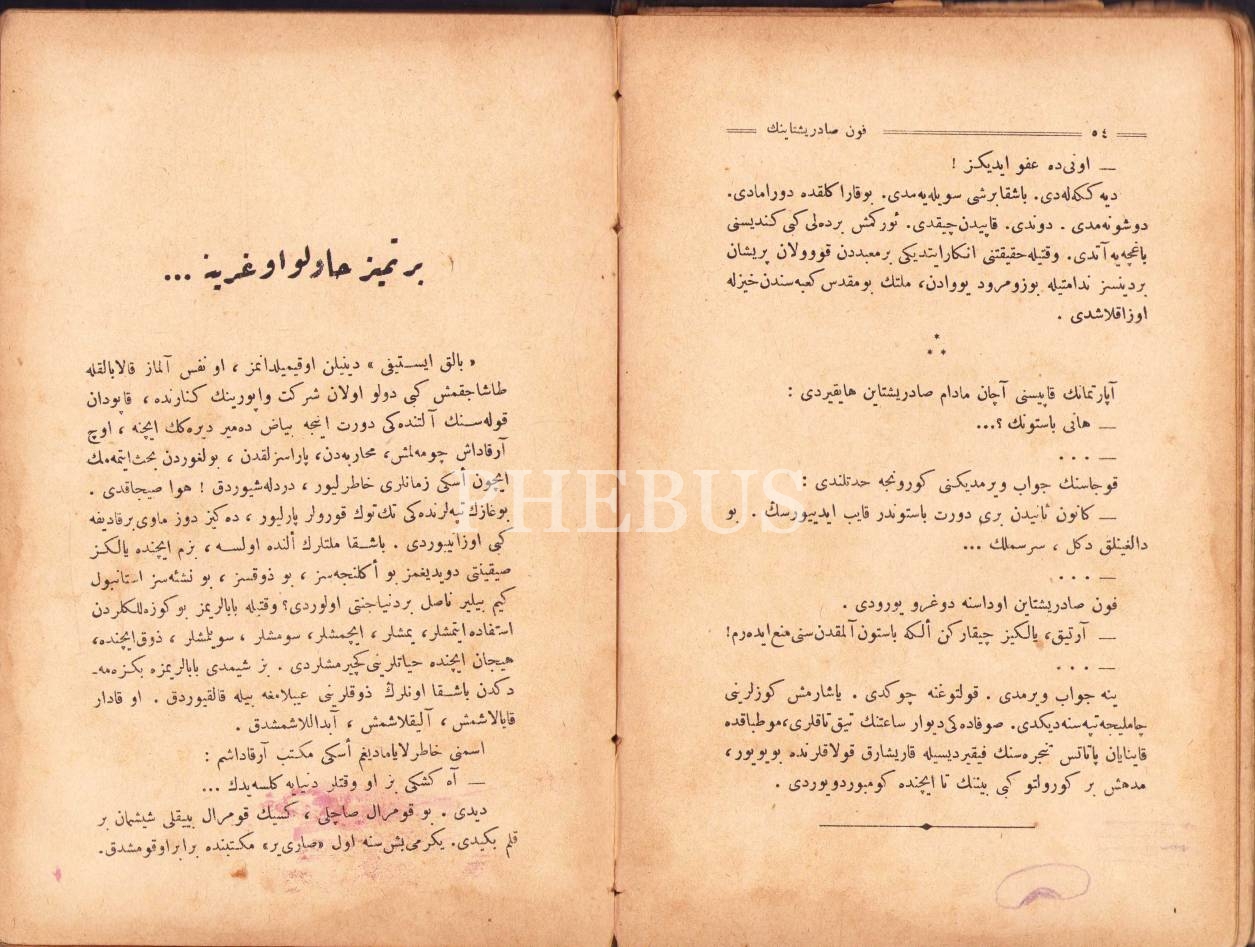 ٥٤
فون صادريشتاينك
— اونی‌ده عفو ايديكز !
ديه ككه‌له‌دی. باشقابرشی سويله‌يه‌مدی. بوقاراكلقده دورامادی.
دوشونه‌مدی . دوندی. قاپيدن چيقدی. ئوركمش برده‌لی كبی كنديسنی
باغچه‌يه آتدی. وقتيله حقيقتنی انكارايتديكی برمعبددن قووولان پريشان
بردينسز ندامتيله بوزومرود يووادن، ملتك بومقدس كعبه‌سندن خيزله
اوزاقلاشدی .
* * *
آپارتمانك قاپيسنی آچان مادام صادريشتاين هايقيردی :
— هانی باستونك ؟...
— . . .
قوجاسنك جواب ويرمديكنی كورونجه حدتلندی :
— كانون ثانيدن بری دورت باستوندر قايب ايدييورسك . بو
دالغينلق دكل ، سرسملك ...
— . . .
فون صادريشتاين اوداسنه دوغرو يورودی .
— آرتيق، يالكيز چيقاركن ألكه باستون آلمقدن سنی منع ايده‌رم!
— . . .
ينه جواب ويرمدی . قولتوغنه چوكدی . ياشارمش كوزلرينی
چامليجه تپه‌سنه ديكدی. صوفاده‌كی ديوار ساعتنك تيق تاقلری، موطباقده
قاينايان پاتاتس تنجره‌سنك فيقيرديسيله قاريشارق قولاقلرنده بويويور،
مدهش بر كورولتو كبی بيننك تا ايچنده كومبوردويوردی .
بر تميز حاولو اوغرينه ...
« بالق ايستيفی » دينيلن اوقيميلدانمز ، او نفس آلماز قالابالقله
طاشاجقمش كبی دولو اولان شركت واپورينك كنارنده ، قاپودان
قوله‌سنك آلتنده‌كی دورت اينجه بياض ده‌مير ديره‌كك ايچنه ، اوچ
آرقاداش چومه‌لمش، محاربه‌دن، پاراسزلقدن ، بولغوردن بحث‌ايتمه‌مك
ايچون أسكی زمانلری خاطرليور ، دردله‌شيوردق ! هوا صيجاقدی .
بوغازك تپه‌لرنده‌كی تك‌توك قورولر پارليور ، ده‌كيز دوز ماوی برقاديفه
كبی اوزانيوردی . باشقا ملتلرك ألنده اولسه ، بزم ايچنده يالكز
صيقينتی دويديغمز بو أكلنجه‌سز ، بو ذوقسز ، بو نشئه‌سز استانبول
كيم بيلير ناصل بردنياجنتی اولوردی؟ وقتيله بابالريمز بو كوزه‌للكلردن
استفاده ايتمشلر، يمشلر ، ايچمشلر ، سومشلر ، سويلمشلر ، ذوق‌ايچنده،
هيجان ايچنده حياتلرينی كچيرمشلردی . بز شيمدی بابالريمزه بكزه‌مه-
دكدن باشقا اونلرك ذوقلرينی عيبلامغه بيله قالقيوردق . او قادار
قابالاشمش ، آليقلاشمش ، آبداللاشمشدق .
اسمنی خاطرلاياماديغم أسكی مكتب آرقاداشم :
— آه كشكی بز او وقتلر دنيايه كلسه‌يدك ...
ديدی . بو قومرال صاچلی ، كسيك قومرال بييقلی شيشمان بر
قلم بكيدی. يكرمی‌بش سنه اول «صاری‌ير» مكتبنده برابراوقومشدق.
PHEBUS